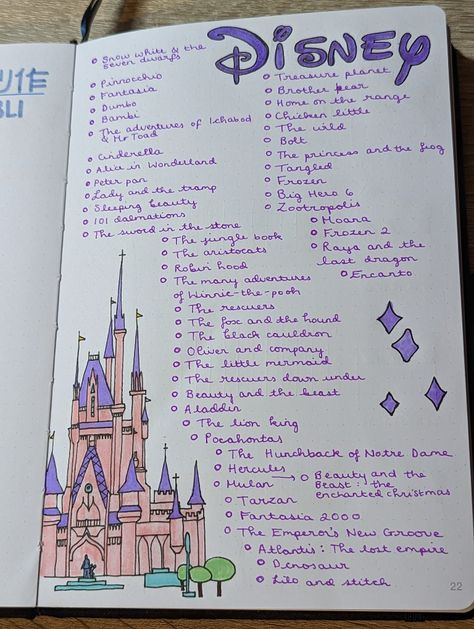 リ作
BLI
DISNEY
Snow white & the
seven dwarfs
Pinnocchio
Fantasia
Dumbo
Bambi
The adventures of Ichabod
& Mr Toad
Cinderella
Alice in Wonderland
Peter pan
Lady and the tramp
Sleeping beauty
101 dalmations
The sword in the stone
Treasure planet
Brother bear
Home on the range
Chicken little
The wild
Bolt
The princess and the frog
Tangled
Frozen
Big Hero 6
Zootropolis
Moana
Frozen 2
Raya and the
last dragon
Encanto
The jungle book
The aristocats
Robin hood
The many adventures
of Winnie-the-pooh
The rescuers
The fox and the hound
The black cauldron
Oliver and company
The little mermaid
The rescuers down under
Beauty and the beast
Aladdin
The lion king
Pocahontas
The Hunchback of Notre Dame
Hercules
Mulan → Beauty and the
Beast: the
enchanted christmas
Tarzan
Fantasia 2000
The Emperor's New Groove
Atlantis: The lost empire
Dinosaur
Lilo and stitch
22